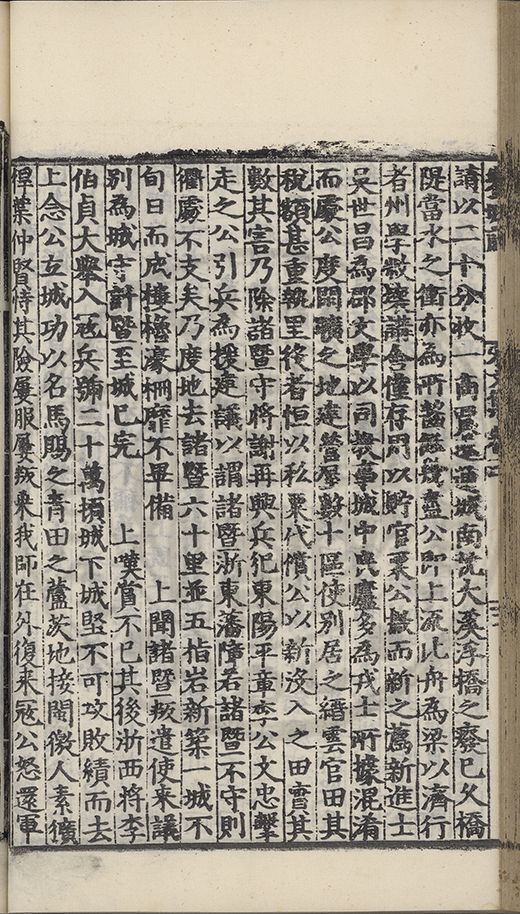 請以二十分收一商賈遂通城南㬻大溪浮橋之廢已久橋
隄當水之衝亦為所齧盡公即上流比舟為梁以濟行
者州學毀壞講舍僅存用以貯官粟公撤而新之薦新進士
吳世昌為郡文學以司教事城中民廬多為戎士所據混淆
而處公度閒曠之地建營屋數十區使別居之縉雲官田其
稅額甚重執里役者恒以私粟代償公以新沒入之田當其
數其害乃除諸暨守將謝再興兵犯東陽平章李公文忠擊
走之公引兵為援建議以謂諸暨浙東藩障若諸暨不守則
衢處不支矣乃度地去諸暨六十里並五指岩新築一城不
旬日而成樓櫓濠柵靡不畢備 上聞諸暨叛遣使來議
別為城守計暨至城已完 上嘆賞不已其後浙西將李
伯貞大舉入寇兵號二十萬頓城下城堅不可攻敗績而去
上念公立城功以名馬賜之青田之蘆茨地接閩徼人素獷
悍葉仲賢恃其險屢服屢叛來我師在外復來寇公怒還軍